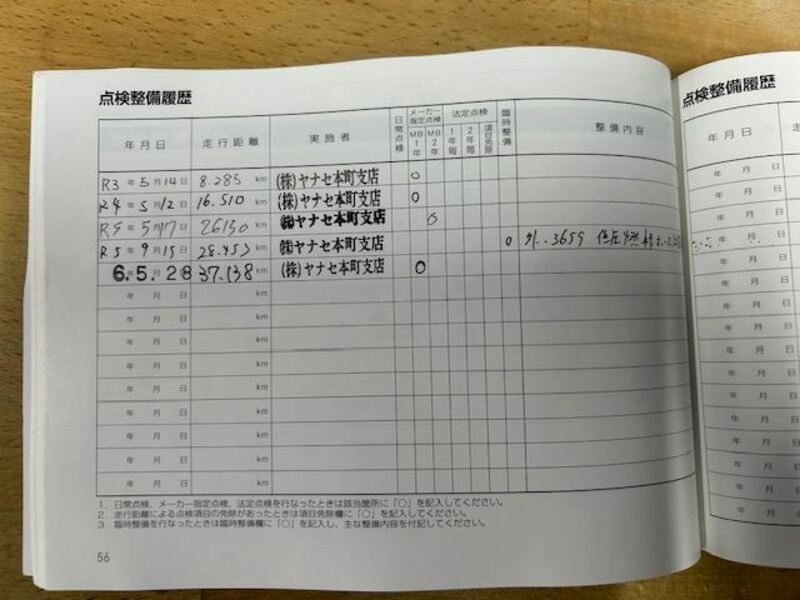 点検整備履歴
年月日 走行距離 実施者 日常点検 メーカー指定点検 MB1年 MB2年 法定点検 1年毎 2年毎 項目免除 臨時整備 整備内容
R3年5月14日 8.285 km (株)ヤナセ本町支店 ○
R4年5月12日 16.510 km (株)ヤナセ本町支店 ○
R5年5月17日 26130 km (株)ヤナセ本町支店 ○
R5年9月15日 28.453 km (株)ヤナセ本町支店 ○ 3659
6.5.28 37.138 km (株)ヤナセ本町支店 ○
年 月 日 km
年 月 日 km
年 月 日 km
年 月 日 km
年 月 日 km
年 月 日 km
年 月 日 km
年 月 日 km
年 月 日 km
1.日常点検、メーカー指定点検、法定点検を行なったときは該当箇所に「○」を記入してください。
2.走行距離による点検項目の免除があったときは項目免除欄に「○」を記入してください。
3.臨時整備を行なったときは臨時整備欄に「○」を記入し、主な整備内容を付記してください。
56
点検整備履歴
年月日
年 月 日
年 月 日
年 月 日
年 月 日
年 月 日
年 月 日
年 月 日
年 月 日
年 月 日
年 月 日
年 月 日
年 月 日
年 月 日